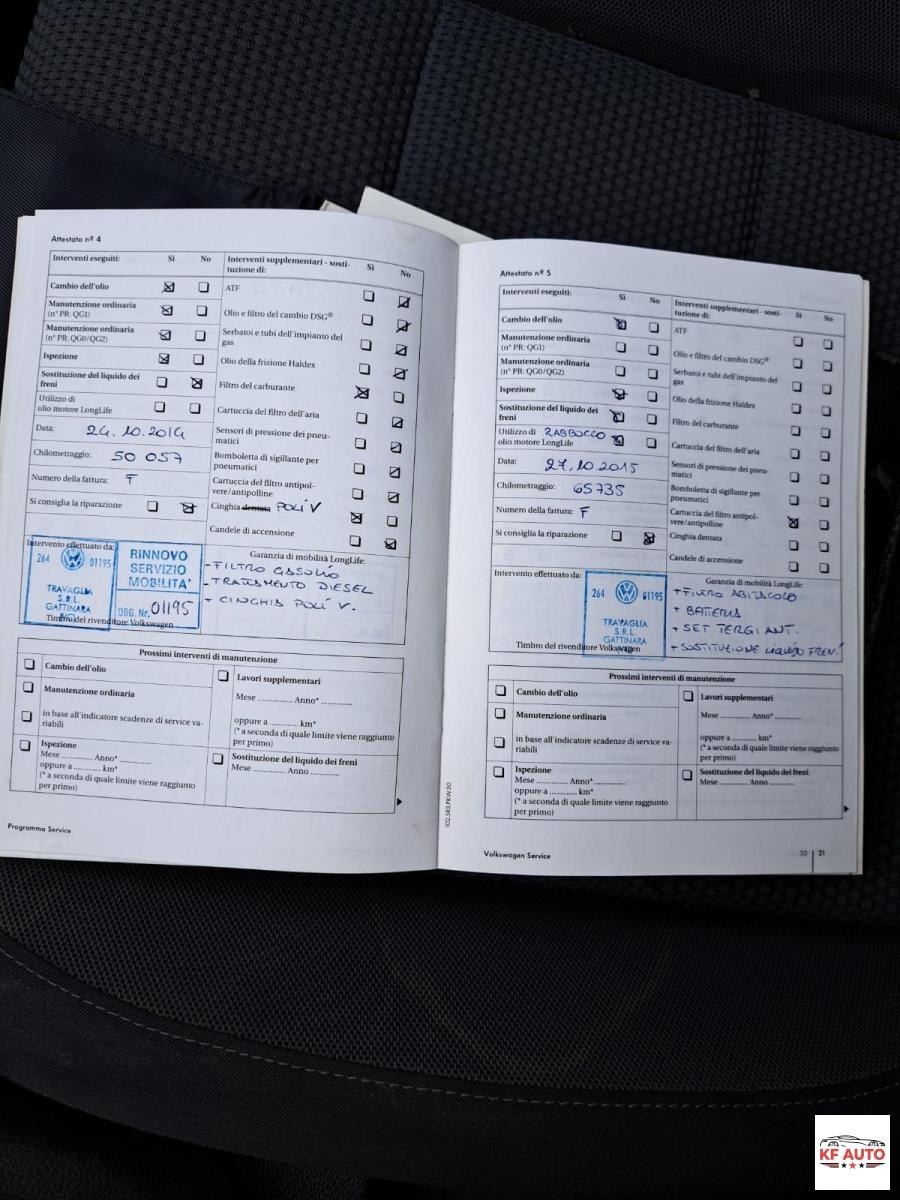 Attestato nº 4
Interventi eseguiti: Sì No
Cambio dell'olio
Manutenzione ordinaria
(nº PR: QG1)
Manutenzione ordinaria
(nº PR: QG0/QG2)
Ispezione
Sostituzione del liquido dei
freni
Utilizzo di
olio motore LongLife
Data: 24.10.2014
Chilometraggio: 50 057
Numero della fattura: F
Si consiglia la riparazione
Interventi supplementari - sosti-
tuzione di: Sì No
ATF
Olio e filtro del cambio DSG®
Serbatoi e tubi dell'impianto del
gas
Olio della frizione Haldex
Filtro del carburante
Cartuccia del filtro dell'aria
Sensori di pressione dei pneu-
matici
Bomboletta di sigillante per
pneumatici
Cartuccia del filtro antipol-
vere/antipolline
Cinghia dentata POLI V
Candele di accensione
Intervento effettuato da:
264 01195
TRAVAGLIA
S.R.L.
GATTINARA
RINNOVO
SERVIZIO
MOBILITA'
ORG. Nr. 01195
Timbro del rivenditore Volkswagen
Garanzia di mobilità LongLife:
- FILTRO GASOLIO
- TRATTAMENTO DIESEL
+ CINGHIA POLI V.
Prossimi interventi di manutenzione
Cambio dell'olio
Manutenzione ordinaria
in base all'indicatore scadenze di service va-
riabili
Ispezione
Mese .............. Anno* ..............
oppure a ............ km*
(* a seconda di quale limite viene raggiunto
per primo)
Lavori supplementari
Mese .............. Anno* ..............
oppure a ............ km*
(* a seconda di quale limite viene raggiunto
per primo)
Sostituzione del liquido dei freni
Mese .............. Anno ..............
Programma Service
102.5R3.PKW.50
Attestato nº 5
Interventi eseguiti: Sì No
Cambio dell'olio
Manutenzione ordinaria
(nº PR: QG1)
Manutenzione ordinaria
(nº PR: QG0/QG2)
Ispezione
Sostituzione del liquido dei
freni
Utilizzo di RABBOCCO
olio motore LongLife
Data: 27.10.2015
Chilometraggio: 65735
Numero della fattura: F
Si consiglia la riparazione
Interventi supplementari - sosti-
tuzione di: Sì No
ATF
Olio e filtro del cambio DSG®
Serbatoi e tubi dell'impianto del
gas
Olio della frizione Haldex
Filtro del carburante
Cartuccia del filtro dell'aria
Sensori di pressione dei pneu-
matici
Bomboletta di sigillante per
pneumatici
Cartuccia del filtro antipol-
vere/antipolline
Cinghia dentata
Candele di accensione
Intervento effettuato da:
264 01195
TRAVAGLIA
S.R.L.
GATTINARA
Timbro del rivenditore Volkswagen
Garanzia di mobilità LongLife:
+ FILTRO ABITACOLO
+ BATTERIA
+ SET TERGI ANT.
+ SOSTITUZIONE LIQUIDO FRENI
Prossimi interventi di manutenzione
Cambio dell'olio
Manutenzione ordinaria
in base all'indicatore scadenze di service va-
riabili
Ispezione
Mese .............. Anno* ..............
oppure a ............ km*
(* a seconda di quale limite viene raggiunto
per primo)
Lavori supplementari
Mese .............. Anno* ..............
oppure a ............ km*
(* a seconda di quale limite viene raggiunto
per primo)
Sostituzione del liquido dei freni
Mese .............. Anno ..............
Volkswagen Service
20 | 21
KF AUTO